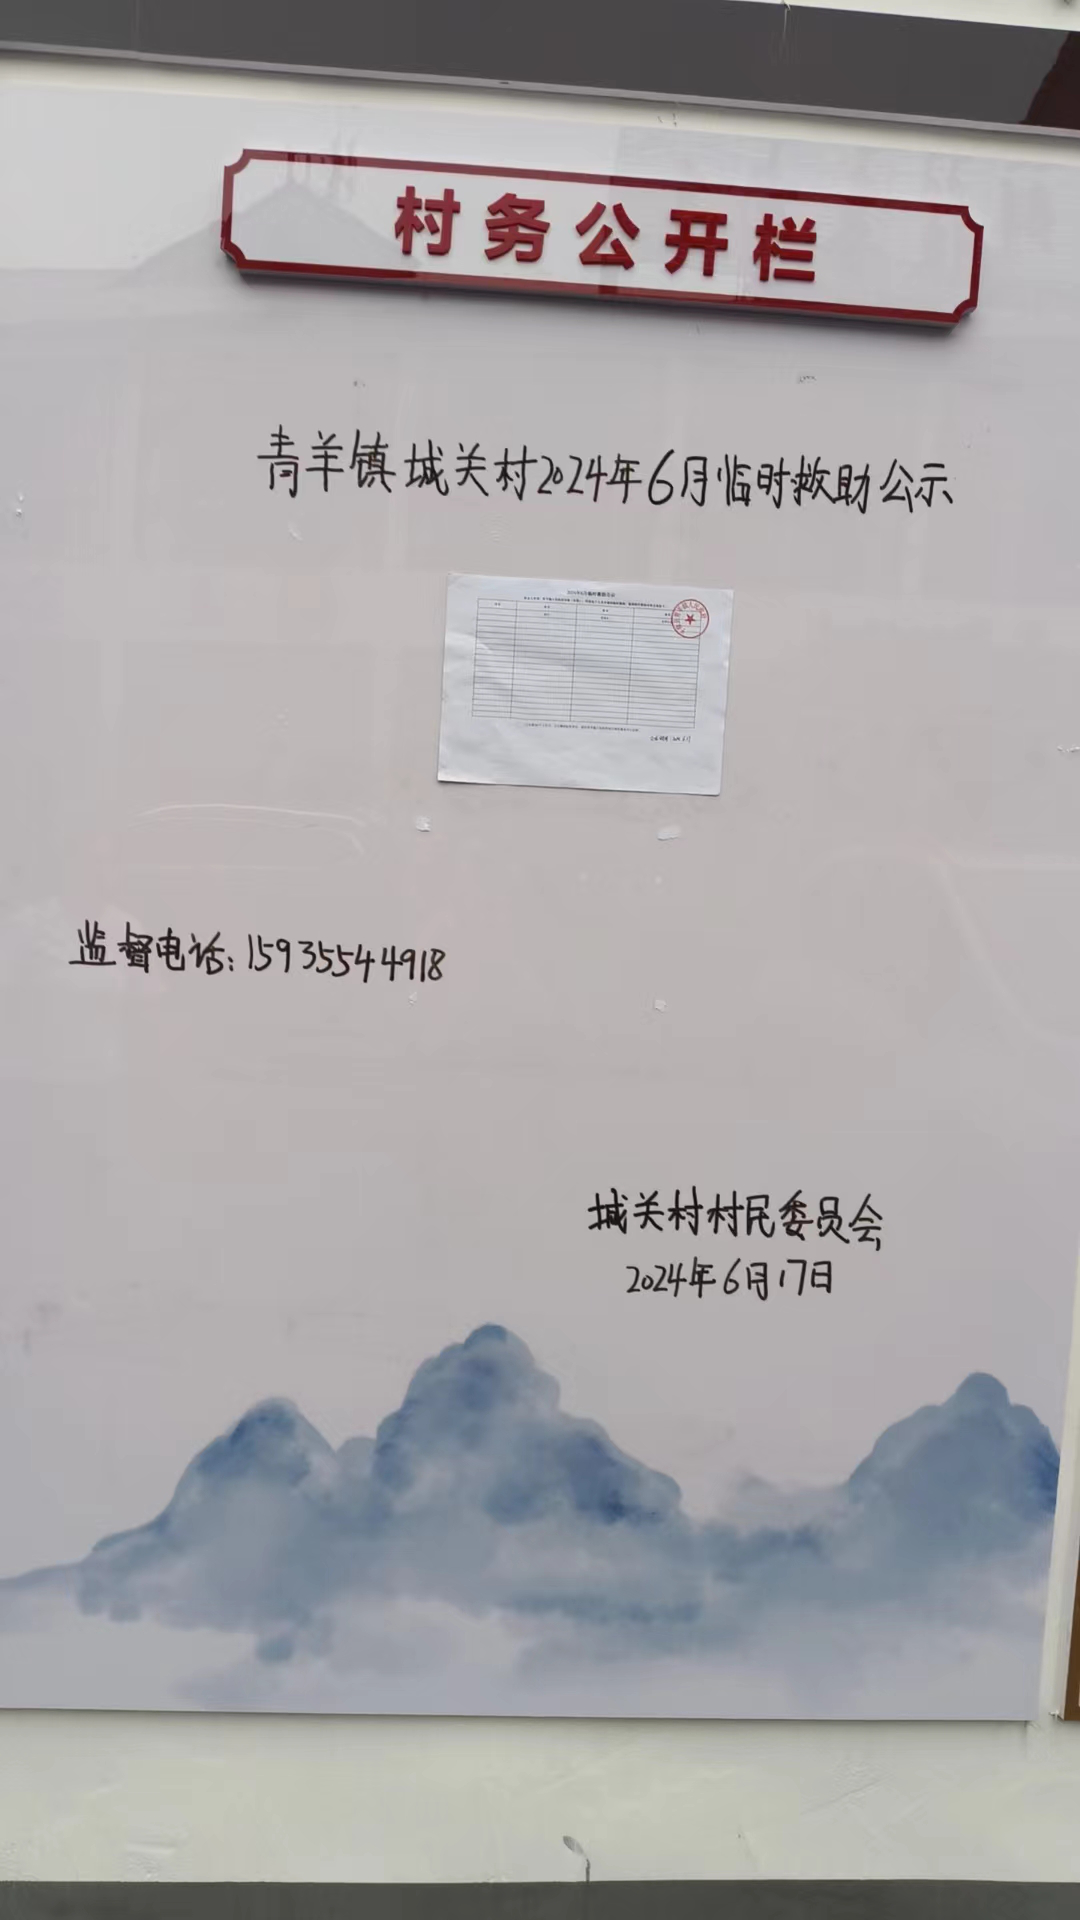 村务公开栏
青羊镇城关村2024年6月临时救助公示
监督电话:15935544918
城关村村民委员会
2024年6月17日